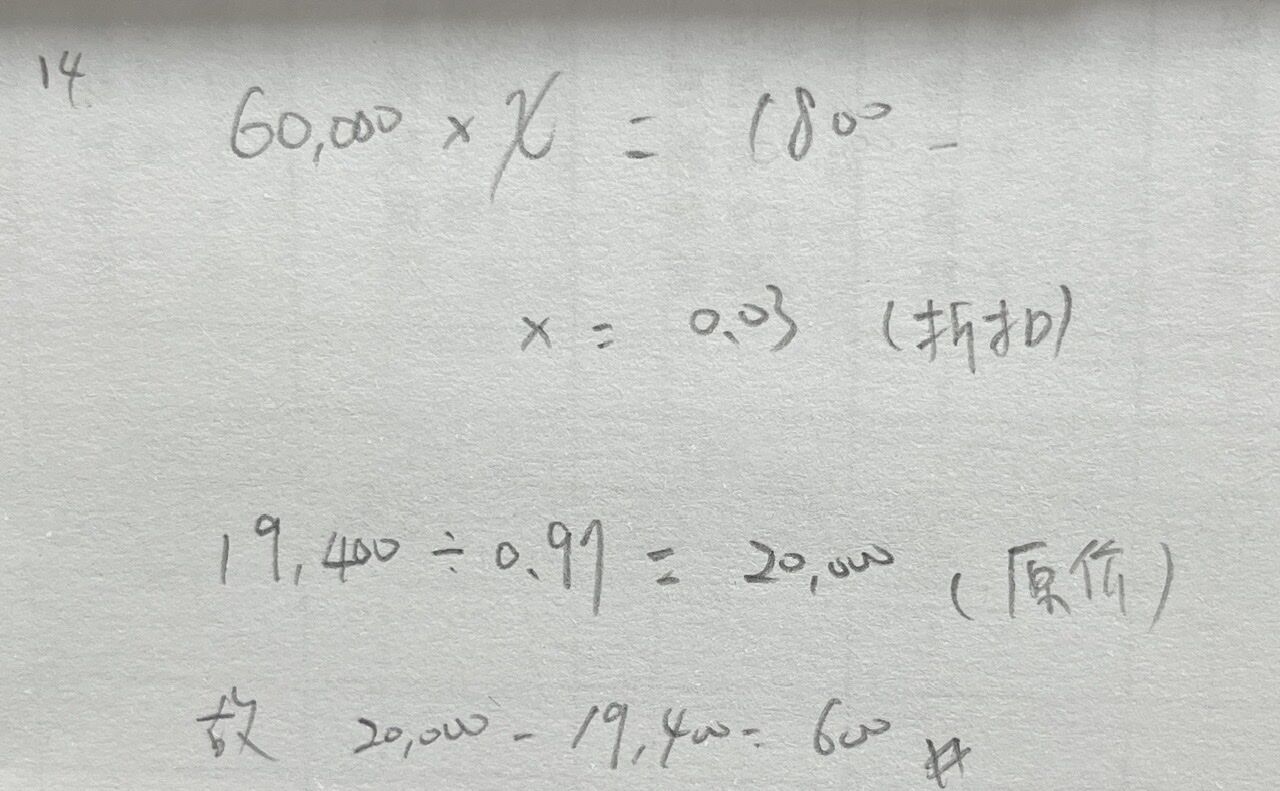 14
60,000 × x = 1800 -
x = 0.03 (折扣)
19,400 ÷ 0.97 = 20,000 (原价)
故 20,000 - 19,400 = 600 #